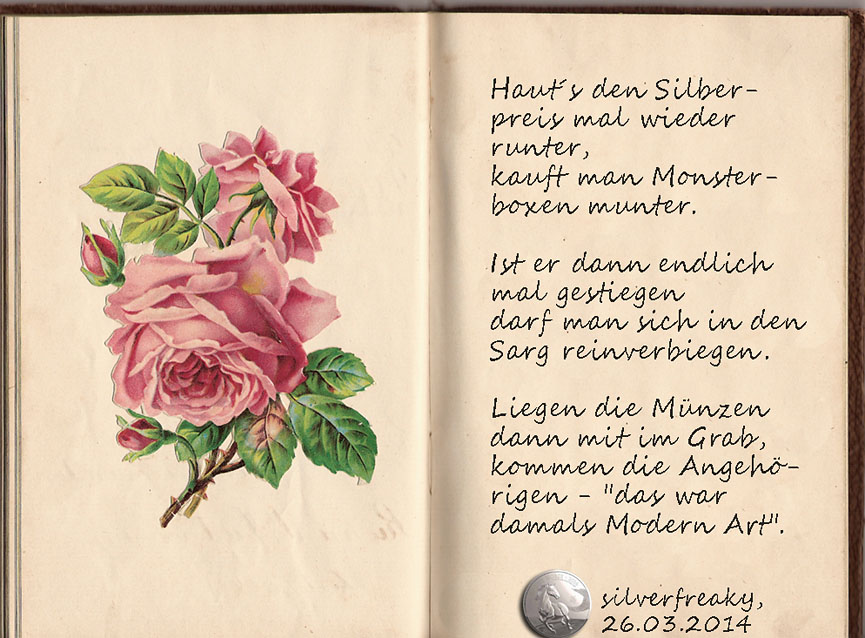 Haut´s den Silber-
preis mal wieder
runter,
kauft man Monster-
boxen munter.
Ist er dann endlich
mal gestiegen
darf man sich in den
Sarg reinverbiegen.
Liegen die Münzen
dann mit im Grab,
kommen die Angehö-
rigen - "das war
damals Modern Art".
silverfreaky,
26.03.2014